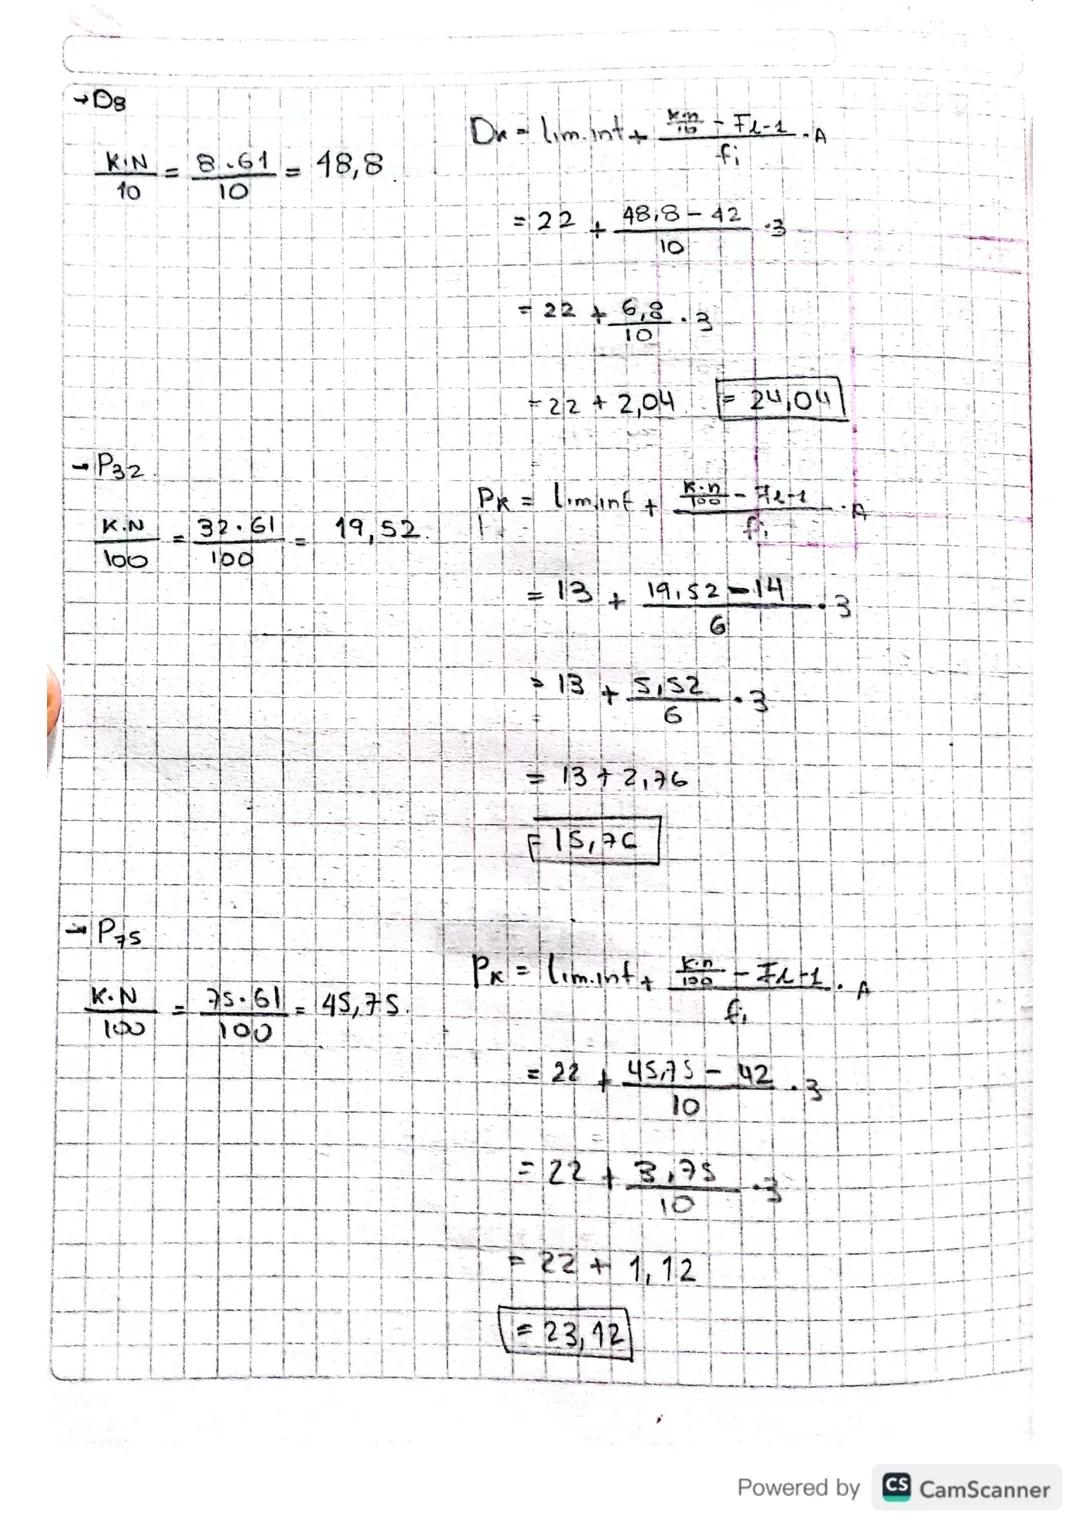 →D8
K.N/10 = 8.61/10 = 48,8
Dk = lim.inf + (k.n/10 - Fi-1)/fi . A
= 22 + (48,8 - 42)/10 . 3
= 22 + 6,8/10 . 3
= 22 + 2,04 = 24,04
→ P32
K.N/100 = 32.61/100 = 19,52.
Pk = lim.inf + (k.n/100 - Fi-1)/fi . A
= 13 + (19,52 - 14)/6 . 3
= 13 + 5,52/6 . 3
= 13 + 2,76
= 15,76
→ P75
K.N/100 = 75.61/100 = 45,75.
Pk = lim.inf + (k.n/100 - Fi-1)/fi . A
= 22 + (45,75 - 42)/10 . 3
= 22 + 3,75/10 . 3
= 22 + 1,12
= 23,12
Powered by CS CamScanner